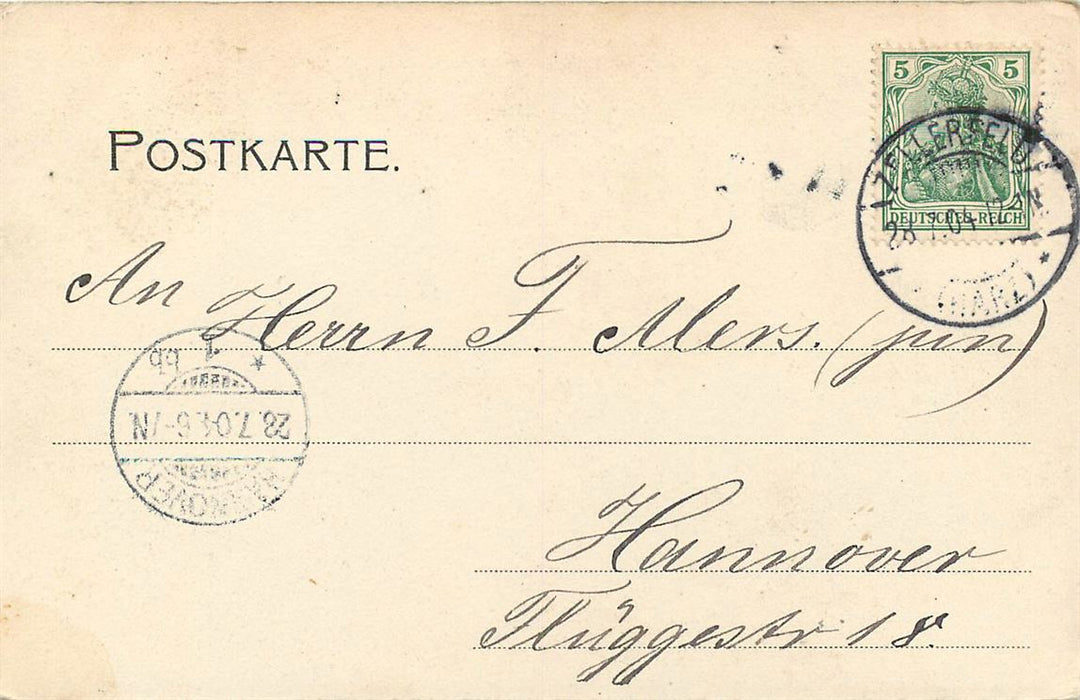 POSTKARTE.
5 5
DEUTSCHES REICH
ZELLERFELD
28.7.04 12-1N
* (HARZ) *
An
Herrn F. Mers. (jun)
HANNOVER
28.7.04.6-7N.
* 1 bb
Hannover
Flüggestr 18.